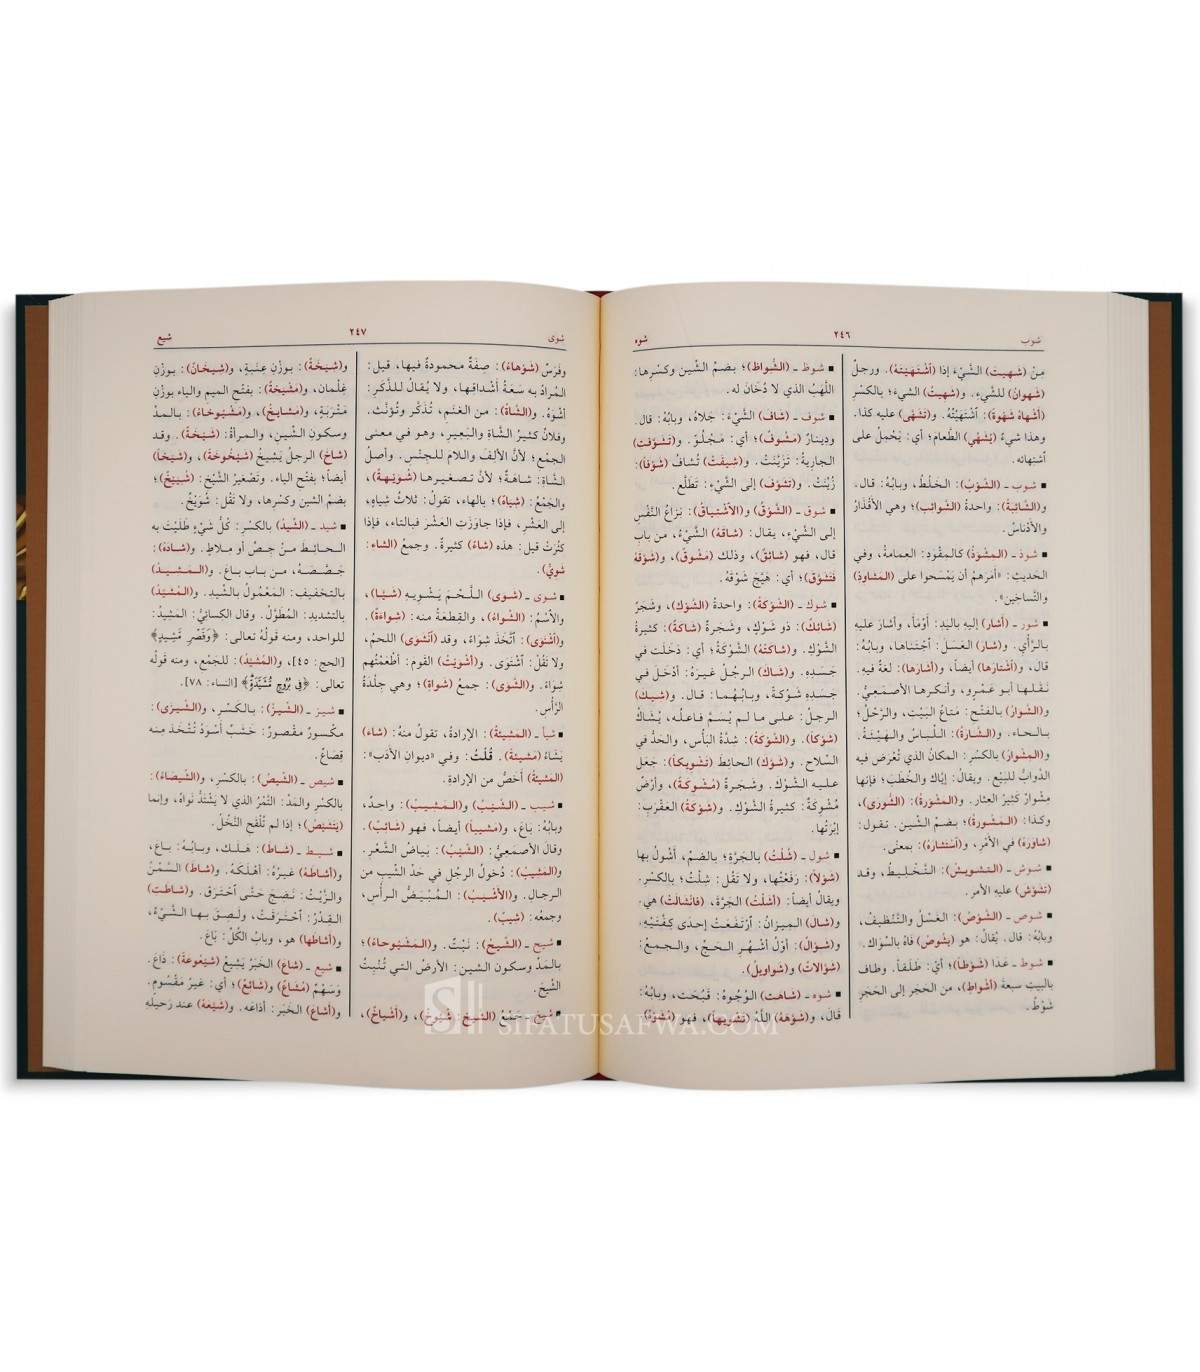 شوب ٢٤٦ شوه
مِنْ (شَهِيتَ) الشَّيْءَ إذا (أَشْتَهَيْتَهُ). ورجلٌ
(شَهْوانُ) للشَّيءِ. و(شَهِيتُ) الشيءَ؛ بالكَسْرِ
(أَشْهاهُ شَهْوةً): اَشْتَهَيْتُهُ. و(تَشَهّى) عليه كذا.
وهذا شيءٌ (يُشَهِّي) الطَّعامَ؛ أي: يَحْمِلُ على
اَشتِهائِه.
■ شوب ـ (الشَّوْبُ): الخَلْطُ، وبابُهُ: قالَ.
و(الشَّائِبَةُ): واحدةُ (الشَّوائِبِ)؛ وهي الأَقْذَارُ
والأَدْناسُ.
■ شوذ ـ (المِشْوَذُ) كالمِقْوَدِ: العِمامةُ، وفي
الحَديثِ: «أمرَهُمْ أن يَمْسَحوا على (المَشاوِذِ)
والتَّساخِينِ».
■ شور ـ (أشارَ) إليهِ باليَدِ: أَوْمَأَ، وأشارَ عليهِ
بالرَّأْيِ. و(شارَ) العَسَلَ: اَجْتَناها، وبابُهُ:
قالَ، و(اَشْتارَها) أيضاً، و(أشارَها): لغةٌ فيهِ.
نَقَلَها أبو عَمْرٍو، وأنكرها الأصمَعِيُّ.
و(الشَّوارُ) بالفَتْحِ: مَتاعُ البَيْتِ، والرَّحْلُ؛
بالحاء. و(الشَّارةُ): اللِّباسُ والهَيْئَةُ.
و(المِشْوارُ) بالكَسْرِ: المكانُ الذي تُعْرَضُ فيه
الدَّوابُّ للبَيْعِ. ويقالُ: إيَّاكَ والخُطَبَ؛ فإنَّها
مِشْوارٌ كَثِيرُ العِثارِ. و(المَشْوَرةُ): (الشُّورَى)،
وكذا: (المَشُورةُ)؛ بضَمِّ الشّينِ. تقول:
(شاوَرَهُ) في الأَمْرِ، و(اَسْتَشارَهُ): بمعنًى.
■ شوش ـ (التَّشْوِيشُ): التَّخْلِيطُ، وقد
(تَشَوَّشَ) عليهِ الأمر.
■ شوص ـ (الشَّوْصُ): الغَسْلُ والتَّنْظِيفُ،
وبابُهُ: قالَ. يُقالُ: هو (يَشُوصُ) فَاهُ بالسِّواكِ.
■ شوط ـ عَدَا (شَوْطاً)؛ أيْ: طَلَقاً. وطافَ
بالبيتِ سبعةَ (أشواطٍ)، من الحَجَرِ إلى الحَجَرِ
شَوْطٌ.
■ شوظ ـ (الشُّواظُ)؛ بضمِّ الشّينِ وكسرِها:
اللَّهَبُ الذي لا دُخَانَ له.
■ شوف ـ (شَافَ) الشَّيْءَ: جَلاهُ، وبابُهُ: قالَ.
ودِينارٌ (مَشُوفٌ)؛ أي: مَجْلُوٌّ. و(تَشَوَّفَتِ)
الجاريةُ: تَزَيَّنَتْ. و(شِيفَتْ) تُشافُ (شَوْفاً):
زُيِّنَتْ. و(تَشَوَّفَ) إلى الشَّيْءِ: تَطَلَّعَ.
■ شوق ـ (الشَّوْقُ) و(الاَشْتِياقُ): نِزَاعُ النَّفْسِ
إلى الشَّيْءِ، يقال: (شاقَهُ) الشَّيْءُ، من بابِ
قال، فهو (شائِقٌ)، وذلك (مَشُوقٌ)، و(شَوَّقَهُ
فَتَشَوَّقَ)؛ أي: هَيَّجَ شَوْقَهُ.
■ شوك ـ (الشَّوْكَةُ): واحدةُ (الشَّوْكِ)، وشَجَرٌ
(شَائِكٌ): ذو شَوْكٍ، وشَجَرَةٌ (شاكةٌ): كثيرةُ
الشَّوْكِ. و(شاكَتْهُ) الشَّوْكَةُ؛ أي: دَخَلَت في
جَسَدِهِ. و(شاكَ) الرجلُ غيرَهُ: أدْخَلَ في
جَسَدِهِ شَوْكَةً، وبابُهُما: قال. و(شِيكَ)
الرجلُ: على ما لم يُسَمَّ فاعلُه، يُشَاكُ
(شَوْكاً). و(الشَّوْكَةُ): شِدَّةُ البَأْسِ، والحَدُّ في
السِّلاح. و(شَوَّكَ) الحائطَ (تَشْوِيكاً): جَعَلَ
عليهِ الشَّوْكَ. وشجَرةٌ (مُشْوِكَةٌ)، وأرضٌ
مُشْوِكَةٌ: كثيرةُ الشَّوْكِ. و(شَوْكَةُ) العَقْرَبِ:
إبْرَتُها.
■ شول ـ (شُلْتُ) بالجَرَّةِ؛ بالضَمِّ، أَشُولُ بها
(شَوْلاً): رَفَعْتُها، ولا تَقُل: شِلْتُ؛ بالكسرِ.
ويقالُ أيضاً: (أشَلْتُ) الجَرَّةَ، (فانْشالَتْ) هي.
و(شالَ) المِيزانُ: اَرْتَفَعَتْ إحدى كِفَّتَيْهِ.
و(شَوَّالٌ): أوّلُ أشْهُرِ الحَجِّ، والجمعُ:
(شَوَّالاتٌ) و(شواويلُ).
■ شوه ـ (شاهَتِ) الوُجُوهُ: قَبُحَت، وبابُهُ:
قالَ، و(شَوَّهَهُ) اللَّهُ (تشْوِيهاً)، فهو (مُشَوَّهٌ)
شوى ٢٤٧ شيع
وفَرَسٌ (شَوْهاءُ): صِفَةٌ محمودةٌ فيها، قيل:
المُرادُ به سَعَةُ أشْداقِها، ولا يُقالُ للذَّكَرِ:
أَشْوَهُ. و(الشَّاةُ): من الغَنَمِ، تُذَكَّر وتُؤَنَّث.
وفلانٌ كثيرُ الشَّاةِ والبَعيرِ، وهو في معنى
الجمْعِ؛ لأنَّ الألِفَ واللامَ للجِنْسِ. وأصلُ
الشَّاةِ: شاهَةٌ؛ لأنَّ تصغيرها (شُوَيْهَةٌ)،
والجَمْعُ: (شِياهٌ)؛ بالهاء، تقول: ثلاثُ شِياهٍ،
إلى العَشْرِ، فإذا جاوَزَتِ العَشْرَ فبالتاء، فإذا
كَثُرَتْ قيل: هذه (شاءٌ) كثيرةٌ. وجمعُ (الشاء:
شَوِيٌّ).
■ شوى ـ (شَوَى) اللَّحْمَ يَشْوِيهِ (شَيّاً)،
والاسْمُ: (الشِّواءُ)، والقِطعَةُ منه: (شِواءَةٌ).
و(اَشْتَوَى): اَتَّخَذَ شِوَاءً، وقد (اَنْشَوَى) اللحمُ،
ولا تَقُلْ: اَشْتَوَى. و(أشْوَيْتُ) القومَ: أطْعَمْتُهم
شِوَاءً. و(الشَّوَى): جمعُ (شَواةٍ)؛ وهي جِلْدَةُ
الرَّأسِ.
■ شيأ ـ (المَشِيئةُ): الإرادةُ، تقولُ منهُ: (شاءَ)
يَشَاءُ (مَشِيئةً). قُلْتُ: وفي «ديوانِ الأدَبِ»:
(المَشِيئةُ) أخَصُّ من الإرادةِ.
■ شيب ـ (الشَّيْبُ) و(المَشِيبُ): واحدٌ،
وبابُهُ: بَاعَ، و(مَشِيباً) أيضاً، فهو (شائِبٌ).
وقالَ الأصمَعِيُّ: (الشَّيْبُ): بَياضُ الشَّعْرِ،
و(المَشِيبُ): دُخولُ الرجُلِ في حَدِّ الشَّيبِ من
الرجالِ. و(الأشْيَبُ): المُبْيَضُّ الرأسِ،
وجمعُه: (شِيبٌ).
■ شيح ـ (الشِّيحُ): نَبْتٌ. و(المَشْيُوحاءُ)؛
بالمَدِّ وسكون الشين: الأرضُ التي تُنْبِتُ
الشِّيحَ.
■ شيخ ـ جَمْعُ (الشَّيخِ: شُيُوخٌ)، و(أشْياخٌ)،
و(شِيَخَةٌ): بوزْنِ عِنَبةٍ، و(شِيخانٌ): بوزْنِ
غِلْمان، و(مَشْيَخَةٌ): بفتْحِ الميم والياءِ بوزْنِ
مَتْرَبَةٍ، و(مَشايخُ)، و(مَشْيُوخاءُ): بالمدِّ
وسكونِ الشّينِ، والمرأةُ: (شَيْخَةٌ). وقد
(شاخَ) الرجلُ يَشِيخُ (شَيْخُوخَةً)، و(شَيَخاً)
أيضاً؛ بفتح الياء. وتَصْغيرُ الشَّيْخِ: (شُيَيْخٌ)؛
بضمّ الشين وكسرِها، ولا تَقُل: شُوَيْخٌ.
■ شيد ـ (الشِّيدُ) بالكسْرِ: كُلُّ شَيْءٍ طَلَيْتَ به
الحائِطَ منْ جَصٍّ أو مِلاطٍ. و(شادَهُ):
جَصَّصَهُ، من بابِ باعَ. و(المَشِيدُ)
بالتخفيفِ: المَعْمُولُ بالشِّيدِ. و(المُشَيَّدُ)
بالتشديدِ: المُطَوَّلُ. وقال الكسائيُّ: المَشِيدُ:
للواحد، ومنه قولُهُ تعالى: ﴿وَقَصْرٍ مَّشِيدٍ﴾
[الحج: ٤٥]، و(المُشَيَّدُ): للجَمْعِ، ومنه قولُه
تعالى: ﴿فِي بُرُوجٍ مُّشَيَّدَةٍ﴾ [النساء: ٧٨].
■ شيز ـ (الشِّيزُ): بالكسْرِ، و(الشِّيزَى):
مكسورٌ مقْصورٌ: خَشَبٌ أسْوَدُ تُتَّخَذُ منه
قِصَاعٌ.
■ شيص ـ (الشِّيصُ): بالكسْرِ، و(الشِّيصَاءُ):
بالكسْرِ والمَدِّ: التَّمْرُ الذي لا يَشْتَدُّ نَواهُ، وإنما
(يَتَشَيَّصُ)؛ إذا لم تُلَقَّحِ النَّخْلُ.
■ شيط ـ (شاطَ): هَلَكَ، وبابُهُ: باعَ،
و(أشاطَهُ) غيرُهُ: أهْلَكَهُ. و(شاطَ) السَّمْنُ
والزَّيْتُ: نَضِجَ حتَّى اَحْتَرَقَ. و(شاطَتِ)
القِدْرُ: اَحْتَرَقَتْ، ولَصِقَ بها الشَّيْءُ،
و(أشاطَها) هو، وبابُ الكُلِّ: بَاعَ.
■ شيع ـ (شاعَ) الخَبَرُ يَشِيعُ (شَيْعُوعَةً): ذَاعَ.
وَسَهْمٌ (مُشاعٌ) و(شائِعٌ)؛ أي: غيرُ مَقْسُومٍ.
و(أشاعَ) الخَبَرَ: أذاعَه. و(شَيَّعَهُ) عند رَحيلِهِ
SIFATUSAFWA.COM